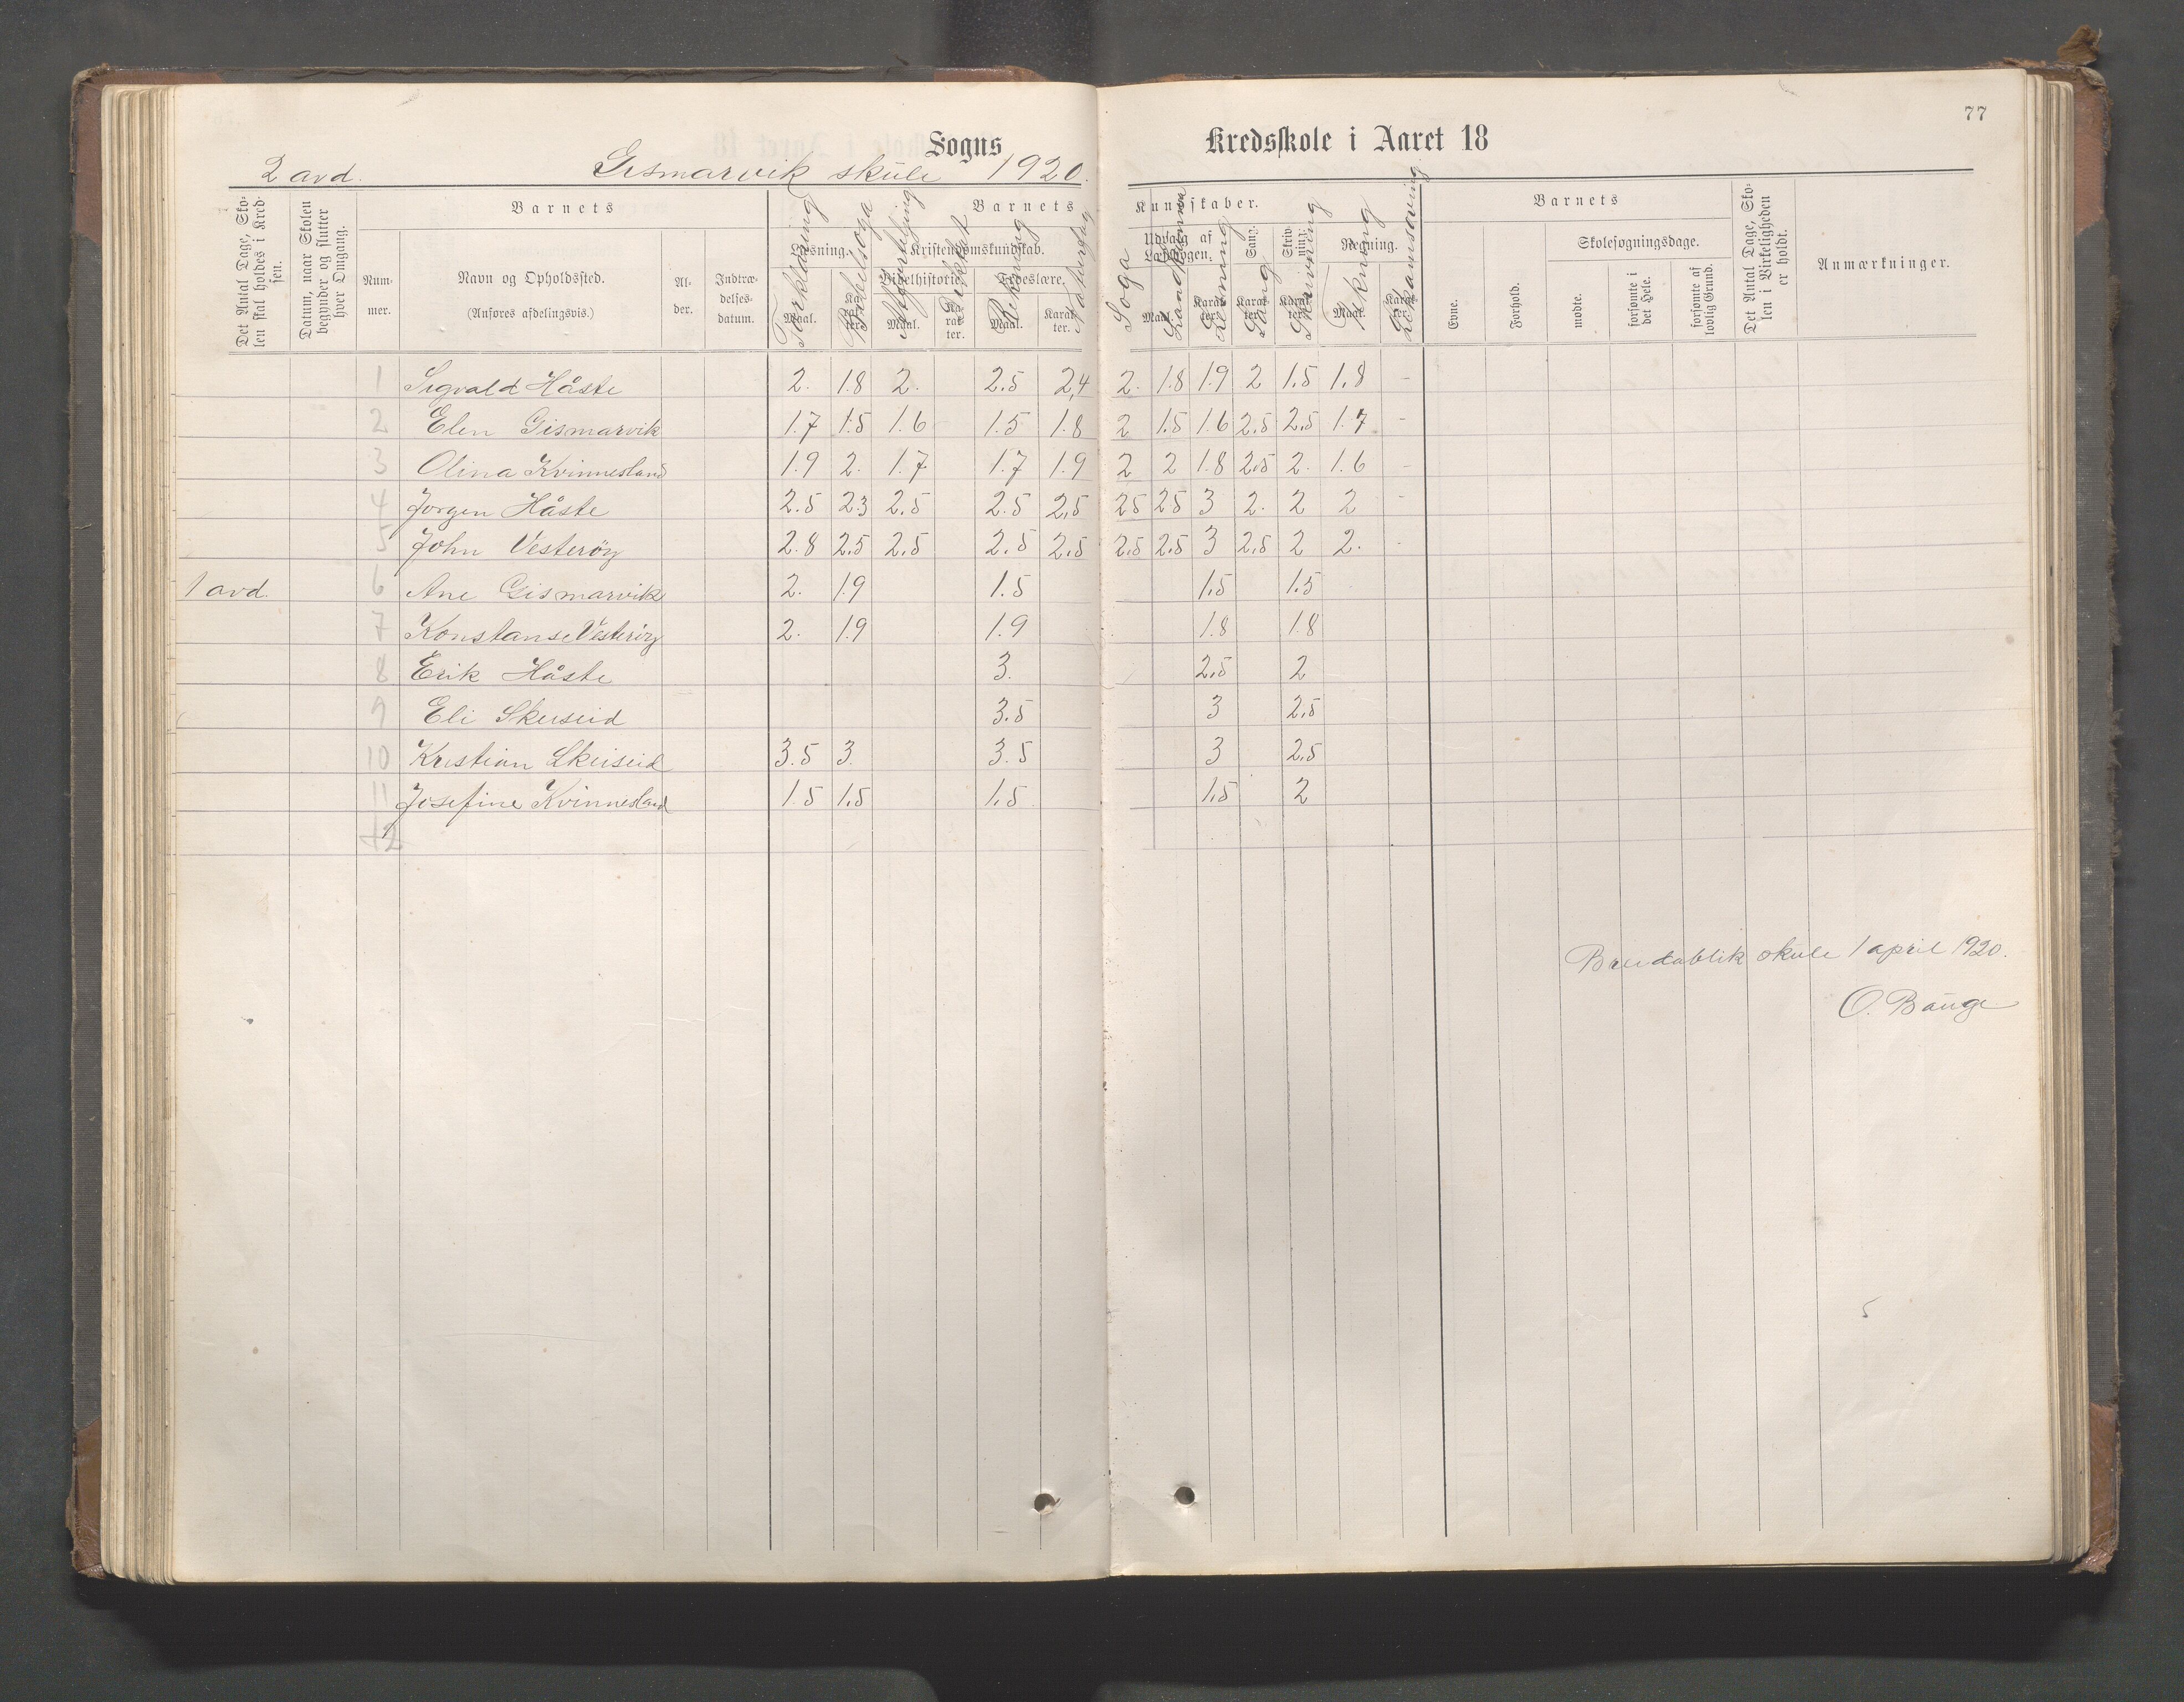 77
Sogns Kredsskole i Aaret 18
2 avd. Gismarvik skule 1920.
Det Antal Dage, Skolen skal holdes i Kredsen.
Datum, naar Skolen begynder og slutter hver Omgang.
Barnets
Nummer.
Navn og Opholdssted.
(Anføres afdelingsvis.)
Alder.
Indtrædelsesdatum.
Barnets Kundskaber.
Læsning. Kristendomskundskab. Udvalg af Læsebogen. Sang. Skrivning. Regning.
Bibelhistorie. Troeslære.
Maal. Karakter. Maal. Karakter. Maal. Karakter. Maal. Karakter. Karakter. Karakter. Maal. Karakter.
Forklaring Bibelsoga Rekning Naturfag Soga Landkunna Sang Skrivning Teikning
Barnets
Evne. Forhold.
Skolesøgningsdage.
mødte. forsømte i det Hele. forsømte af lovlig Grund.
Det Antal Dage, Skolen i Virkeligheden er holdt.
Anmærkninger.
1 Sigvald Håste 2. 1.8 2. 2.5 2,4 2. 1.8 1.9 2 1.5 1.8 -
2 Elen Gismarvik 1.7 1.5 1.6 1.5 1.8 2 1.5 1.6 2.5 2.5 1.7 -
3 Olina Kvinnesland 1.9 2. 1.7 1.7 1.9 2 2 1.8 2.5 2. 1.6 -
4 Jørgen Håste 2.5 2.3 2.5 2.5 2,5 25 25 3 2. 2 2 -
5 John Vesterøy 2.8 2.5 2.5 2.5 2.5 2.5 2.5 3 2.5 2 2. -
1 avd. 6 Ane Gismarvik 2. 1.9 1.5 1.5 1.5
7 Konstanse Vesterøy 2. 1.9 1.9 1.8 1.8
8 Erik Håste 3. 2.5 2
9 Eli Skeiseid 3.5 3 2.5
10 Kristian Skeiseid 3.5 3. 3.5 3 2.5
11 Josefine Kvinnesland 1.5 1.5 1.5 1.5 2
12
Breidablik skule 1 april 1920.
O. Bauge